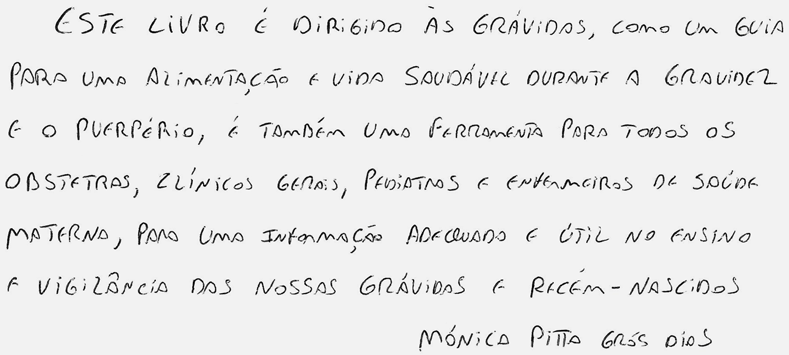 ESTE LIVRO É DIRIGIDO ÀS GRÁVIDAS, COMO UM GUIA
PARA UMA ALIMENTAÇÃO E VIDA SAUDÁVEL DURANTE A GRAVIDEZ
E O PUERPÉRIO, É TAMBÉM UMA FERRAMENTA PARA TODOS OS
OBSTETRAS, CLÍNICOS GERAIS, PEDIATRAS E ENFERMEIROS DE SAÚDE
MATERNA, PARA UMA INFORMAÇÃO ADEQUADA E ÚTIL NO ENSINO
E VIGILÂNCIA DAS NOSSAS GRÁVIDAS E RECÉM-NASCIDOS
MÓNICA PITTA GRÓS DIAS